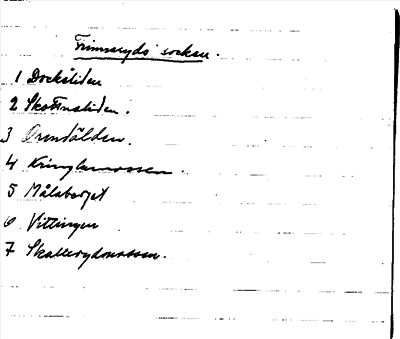 Finnaryds socken.
1 Dockåliden
2 Skottnaliden.
3
4 Kringlamossen.
5 Målaberget
6 Vittingen
7 Skallerydmossen.